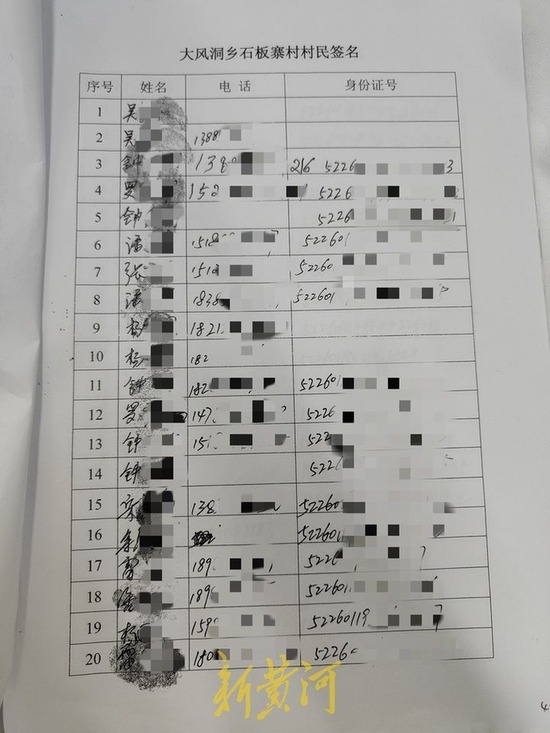 大风洞乡石板寨村村民签名
序号 姓名 电 话 身份证号
1 吴
2 吴 1388
3 钟 138 216 5226 3
4 罗 152 5226
5 钟 5226
6 潘 1518 522601
7 张 151 52260
8 潘 1838 522601
9 杨 1821
10 杨 182
11 钟 182 522601
12 罗 147 5226
13 钟 15 522
14 钟 5226
15 138 52260
16 522601
17 189 5226
18 潘 189 5226
19 杨 159 52260119
20 180 5226
新黄河